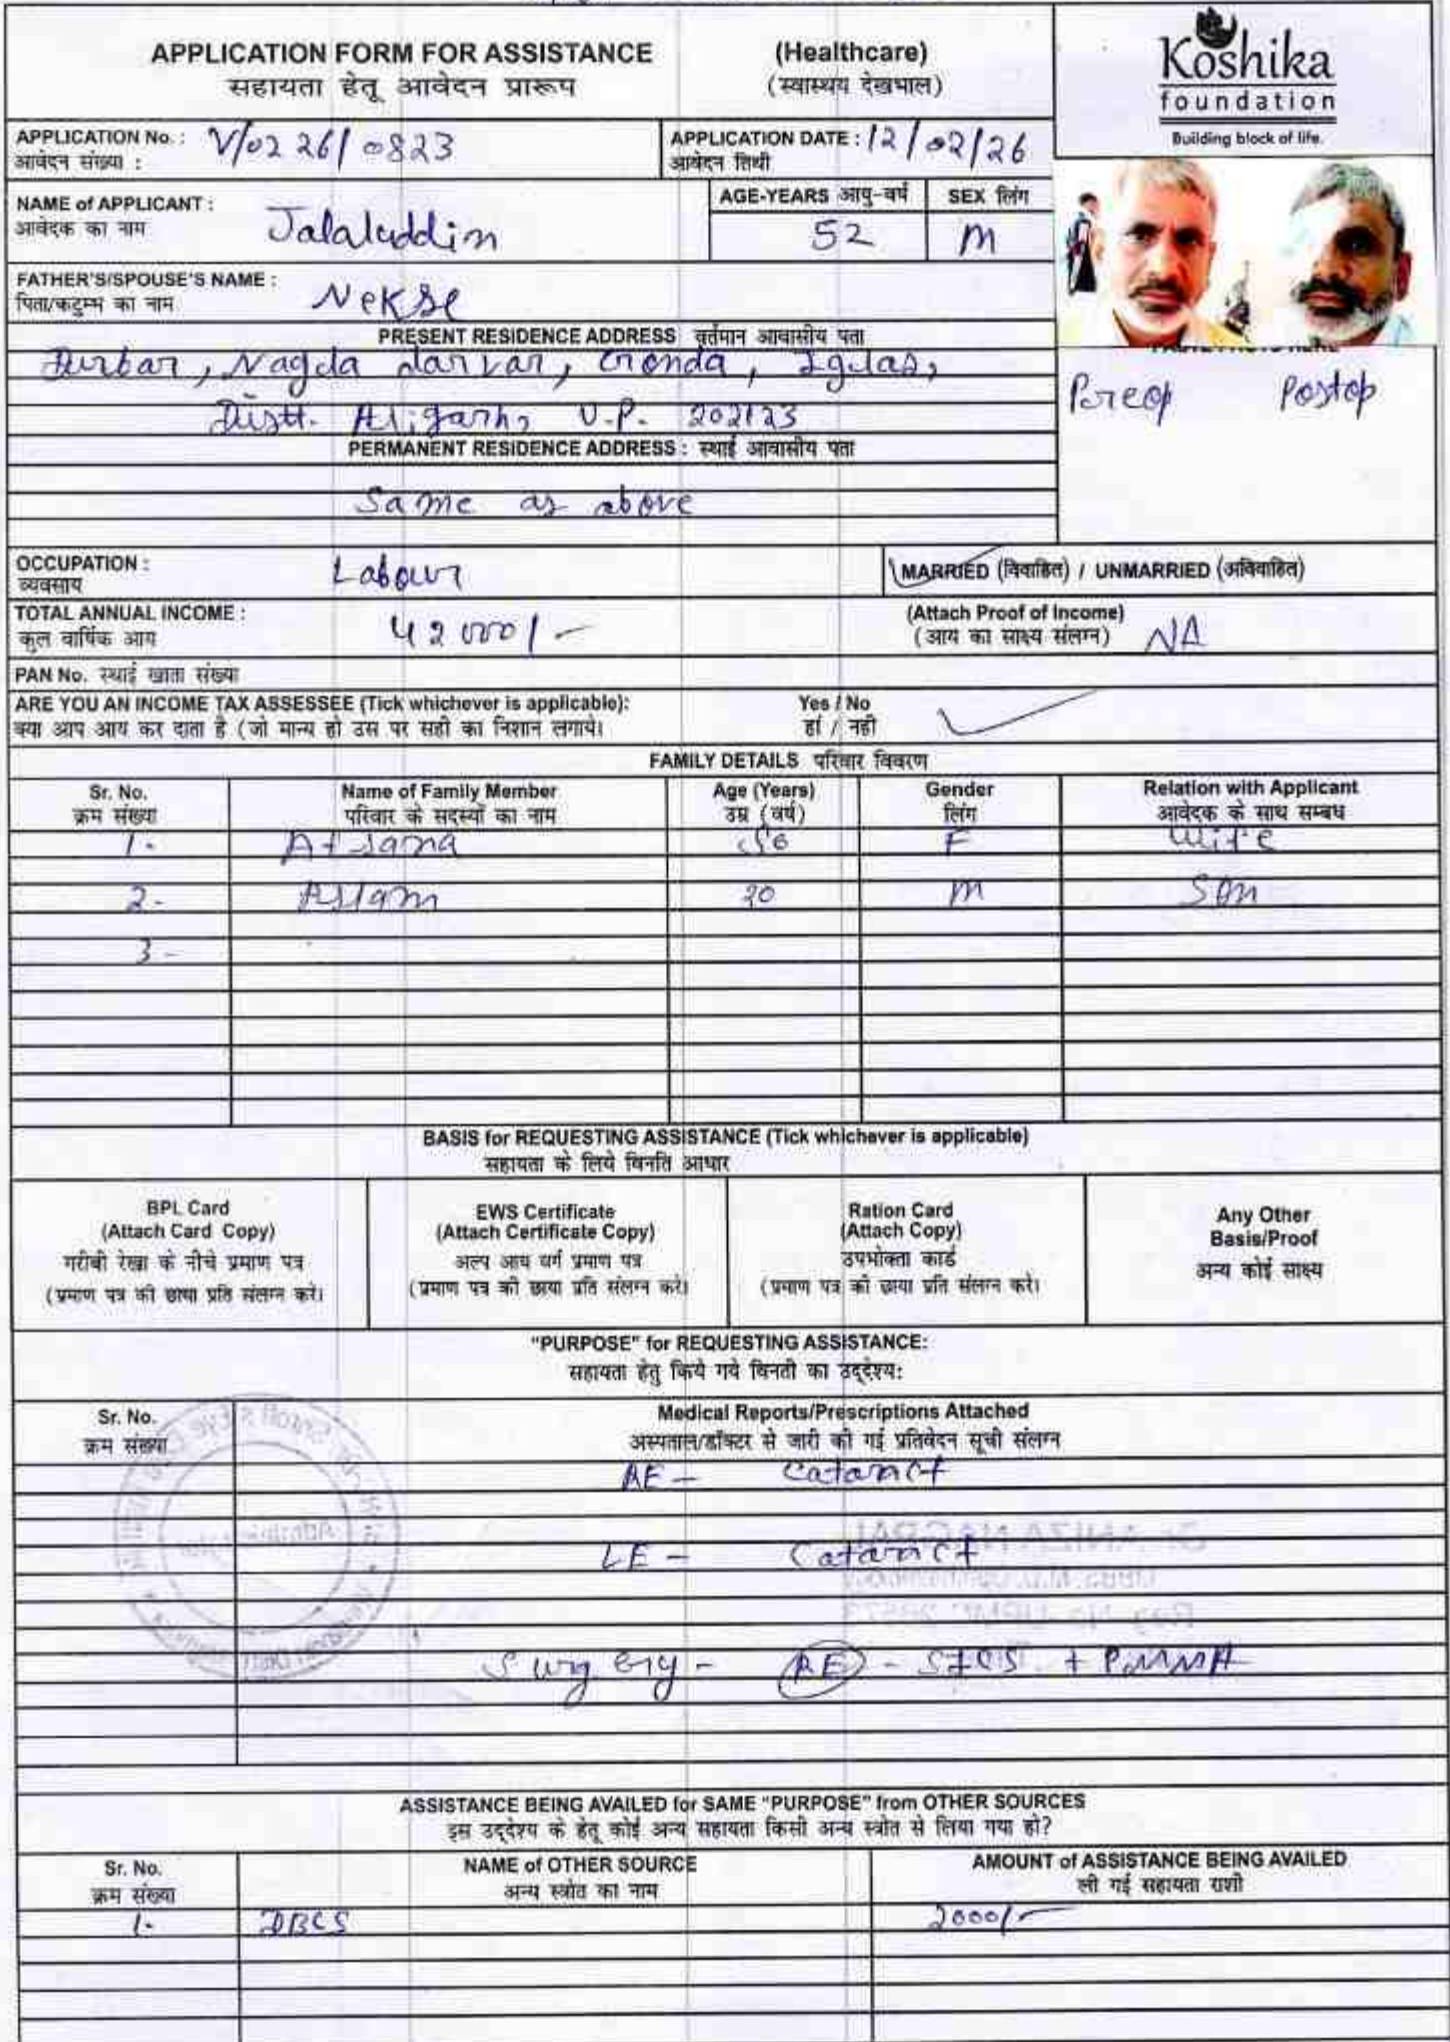 APPLICATION FORM FOR ASSISTANCE
सहायता हेतू आवेदन प्रारूप
(Healthcare)
(स्वास्थय देखभाल)
Koshika
foundation
Building block of life.
APPLICATION No. : V/0226/0823
आवेदन संख्या :
APPLICATION DATE : 12/02/26
आवेदन तिथी
NAME of APPLICANT : Jalaluddin
आवेदक का नाम
AGE-YEARS आयु-वर्ष
52
SEX लिंग
M
FATHER'S/SPOUSE'S NAME : Nekse
पिता/कटुम्भ का नाम
PRESENT RESIDENCE ADDRESS वर्तमान आवासीय पता
Nagla darvar, Gonda, Iglas,
Distt. Aligarh, U.P. 202123
Preop Postop
PERMANENT RESIDENCE ADDRESS : स्थाई आवासीय पता
Same as above
OCCUPATION : Labour
व्यवसाय
MARRIED (विवाहित) / UNMARRIED (अविवाहित)
TOTAL ANNUAL INCOME : 42000/-
कुल वार्षिक आय
(Attach Proof of Income)
(आय का साक्ष्य संलग्न) NA
PAN No. स्थाई खाता संख्या
ARE YOU AN INCOME TAX ASSESSEE (Tick whichever is applicable): Yes / No
क्या आप आय कर दाता है (जो मान्य हो उस पर सही का निशान लगाये। हां / नही
FAMILY DETAILS परिवार विवरण
Sr. No. Name of Family Member Age (Years) Gender Relation with Applicant
क्रम संख्या परिवार के सदस्यों का नाम उम्र (वर्ष) लिंग आवेदक के साथ सम्बध
1. Afsana F Wife
2. Aslam 20 M Son
3.
BASIS for REQUESTING ASSISTANCE (Tick whichever is applicable)
सहायता के लिये विनति आधार
BPL Card
(Attach Card Copy)
गरीबी रेखा के नीचे प्रमाण पत्र
(प्रमाण पत्र की छाया प्रति संलग्न करे।
EWS Certificate
(Attach Certificate Copy)
अल्प आय वर्ग प्रमाण पत्र
(प्रमाण पत्र की छाया प्रति संलग्न करे।
Ration Card
(Attach Copy)
उपभोक्ता कार्ड
(प्रमाण पत्र की छाया प्रति संलग्न करे।
Any Other
Basis/Proof
अन्य कोई साक्ष्य
"PURPOSE" for REQUESTING ASSISTANCE:
सहायता हेतु किये गये विनती का उद्देश्य:
Sr. No. Medical Reports/Prescriptions Attached
क्रम संख्या अस्पताल/डॉक्टर से जारी की गई प्रतिवेदन सूची संलग्न
RE - Cataract
LE - Cataract
Surgery - RE - SICS + PMMA
ASSISTANCE BEING AVAILED for SAME "PURPOSE" from OTHER SOURCES
इस उद्देश्य के हेतू कोई अन्य सहायता किसी अन्य स्त्रोत से लिया गया हो?
Sr. No. NAME of OTHER SOURCE AMOUNT of ASSISTANCE BEING AVAILED
क्रम संख्या अन्य स्त्रोत का नाम ली गई सहायता राशी
1. DBCS 2000/-